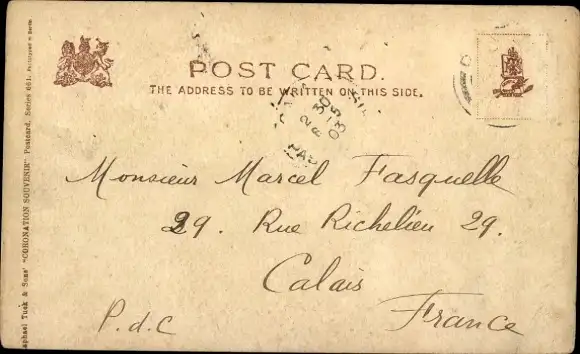 POST CARD.
THE ADDRESS TO BE WRITTEN ON THIS SIDE.
Monsieur Marcel Fasquelle
29. Rue Richelieu 29.
Calais
France
P.d.C
Raphael Tuck & Sons' "CORONATION SOUVENIR" Postcard, Series 661.